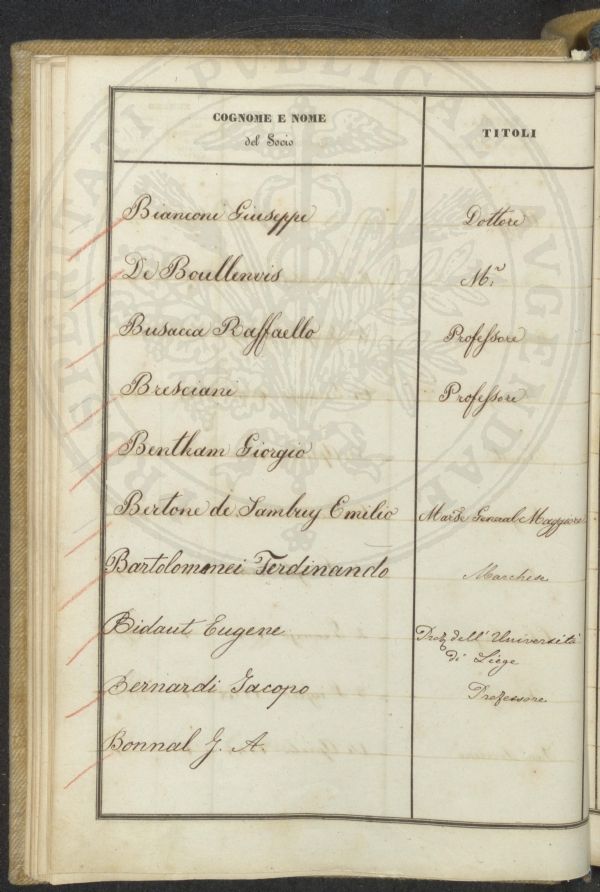 COGNOME E NOME
del Socio
TITOLI
Bianconi Giuseppe Dottore
De Boullenois M.r
Busacca Raffaello Professore
Bresciani Professore
Bentham Giorgio
Bertone de Sambuy Emilio March.e General Maggiore
Bartolommei Ferdinando Marchese
Bidaut Eugene Prof. dell' Università
di Liege
Bernardi Jacopo Professore
Bonnal J. A.
PROSPERITATI PVBLICAE AVGENDAE